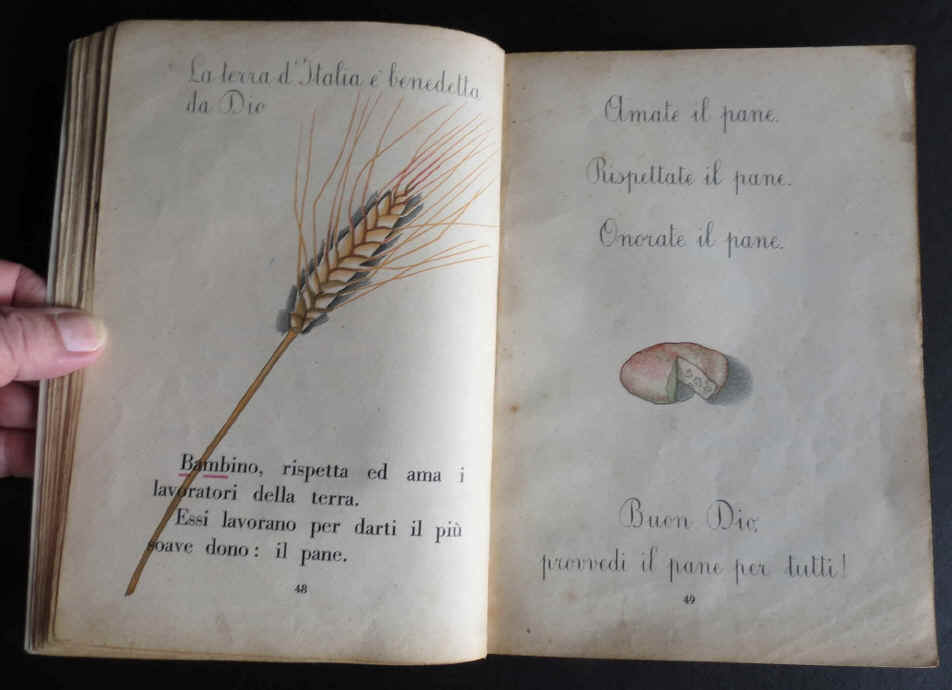 La terra d'Italia è benedetta
da Dio
Bambino, rispetta ed ama i
lavoratori della terra.
Essi lavorano per darti il più
soave dono: il pane.
48
Amate il pane.
Rispettate il pane.
Onorate il pane.
Buon Dio,
provvedi il pane per tutti!
49